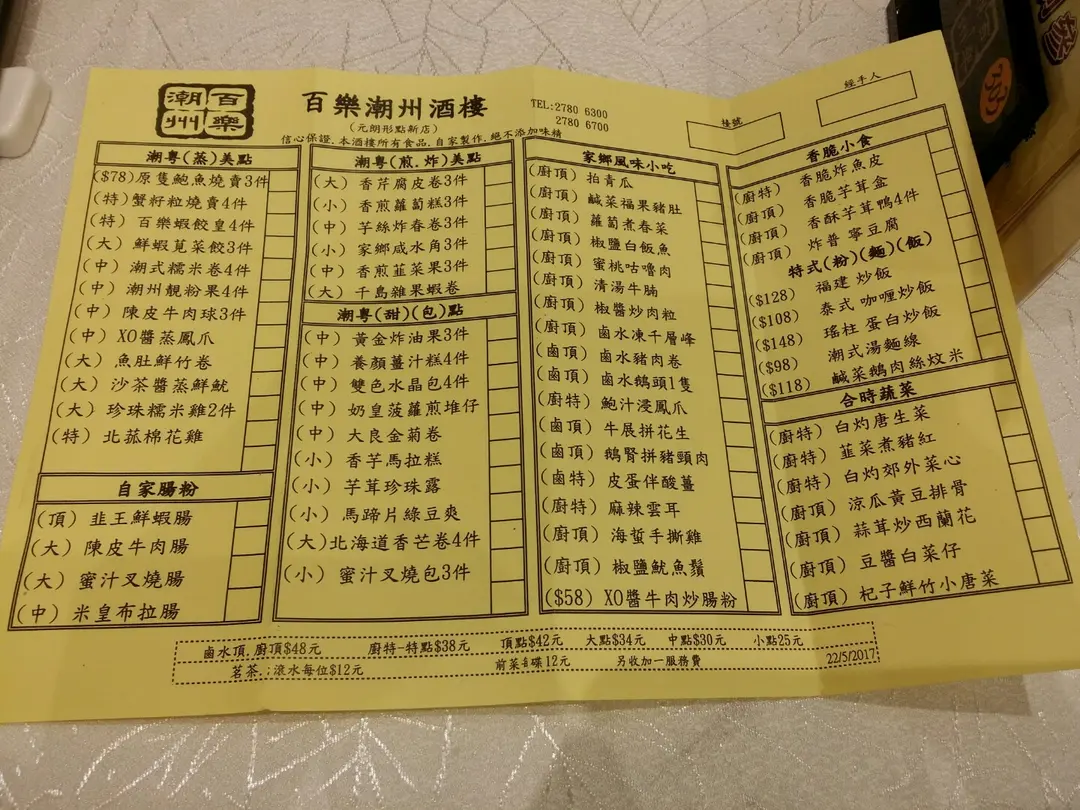 百樂潮州
百樂潮州酒樓
(元朗形點新店)
TEL:2780 6300
2780 6700
信心保證.本酒樓所有食品.自家製作.絕不添加味精
枱號
經手人
潮粵(蒸)美點
($78)原隻鮑魚燒賣3件
(特)蟹籽粒燒賣4件
(特) 百樂蝦餃皇4件
(大) 鮮蝦莧菜餃3件
(中) 潮式糯米卷4件
(中) 潮州靚粉果4件
(中) 陳皮牛肉球3件
(中) XO醬蒸鳳爪
(大) 魚肚鮮竹卷
(大) 沙茶醬蒸鮮魷
(大) 珍珠糯米雞2件
(特) 北菰棉花雞
自家腸粉
(頂) 韭王鮮蝦腸
(大) 陳皮牛肉腸
(大) 蜜汁叉燒腸
(中) 米皇布拉腸
潮粵(煎.炸)美點
(大) 香芹腐皮卷3件
(小) 香煎蘿蔔糕3件
(中) 芋絲炸春卷3件
(小) 家鄉咸水角3件
(中) 香煎韮菜果3件
(大) 千島雜果蝦卷
潮粵(甜)(包)點
(中) 黃金炸油果3件
(中) 養顏薑汁糕4件
(中) 雙色水晶包4件
(中) 奶皇菠蘿煎堆仔
(中) 大良金菊卷
(小) 香芋馬拉糕
(小) 芋茸珍珠露
(小) 馬蹄片綠豆爽
(大)北海道香芒卷4件
(小) 蜜汁叉燒包3件
家鄉風味小吃
(廚頂) 拍青瓜
(廚頂) 鹹菜福果豬肚
(廚頂) 蘿蔔煮春菜
(廚頂) 椒鹽白飯魚
(廚頂) 蜜桃咕嚕肉
(廚頂) 清湯牛腩
(廚頂) 椒醬炒肉粒
(鹵頂) 鹵水凍千層峰
(鹵頂) 鹵水豬肉卷
(鹵頂) 鹵水鵝頭1隻
(廚特) 鮑汁浸鳳爪
(鹵頂) 牛展拼花生
(鹵頂) 鵝腎拼豬頸肉
(鹵特) 皮蛋伴酸薑
(廚特) 麻辣雲耳
(廚頂) 海蜇手撕雞
(廚頂) 椒鹽魷魚鬚
($58) XO醬牛肉炒腸粉
香脆小食
(廚特) 香脆炸魚皮
(廚頂) 香脆芋茸盒
(廚頂) 香酥芋茸鴨4件
(廚頂) 炸普寧豆腐
特式(粉)(麵)(飯)
($128) 福建炒飯
($108) 泰式咖喱炒飯
($148) 瑤柱蛋白炒飯
($98) 潮式湯麵線
($118) 鹹菜鵝肉絲炆米
合時蔬菜
(廚特) 白灼唐生菜
(廚特) 韮菜煮豬紅
(廚特) 白灼郊外菜心
(廚頂) 涼瓜黃豆排骨
(廚頂) 蒜茸炒西蘭花
(廚頂) 豆醬白菜仔
(廚頂) 杞子鮮竹小唐菜
鹵水頂.廚頂$48元 廚特-特點$38元 頂點$42元 大點$34元 中點$30元 小點25元
茗茶.:滾水每位$12元 前菜每碟12元 另收加一服務費 22/5/2017